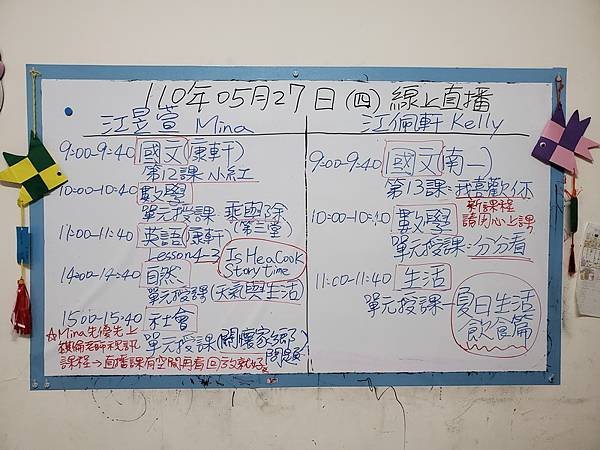 110年05月27日(四)線上直播
江昱萱 Mina
9:00-9:40 國文(康軒)
第12課 小紅
10:00-10:40 數學
單元授課 乘與除
(第三堂)
11:00-11:40 英語(康軒)
Lesson4-3 Is He a Cook
Story time
14:00-14:40 自然
單元授課(天氣與生活
15:00-15:40 社會
單元授課(關懷家鄉
問題
☆Mina先優先上
課程→直播課有空閒再看回放就好
江佩軒 Kelly
9:00-9:40 國文(南一)
第13課:我喜歡你
10:00-10:40 數學
新課程
請用心上課
單元授課:分分看
11:00-11:40 生活
單元授課
夏日生活
飲食篇